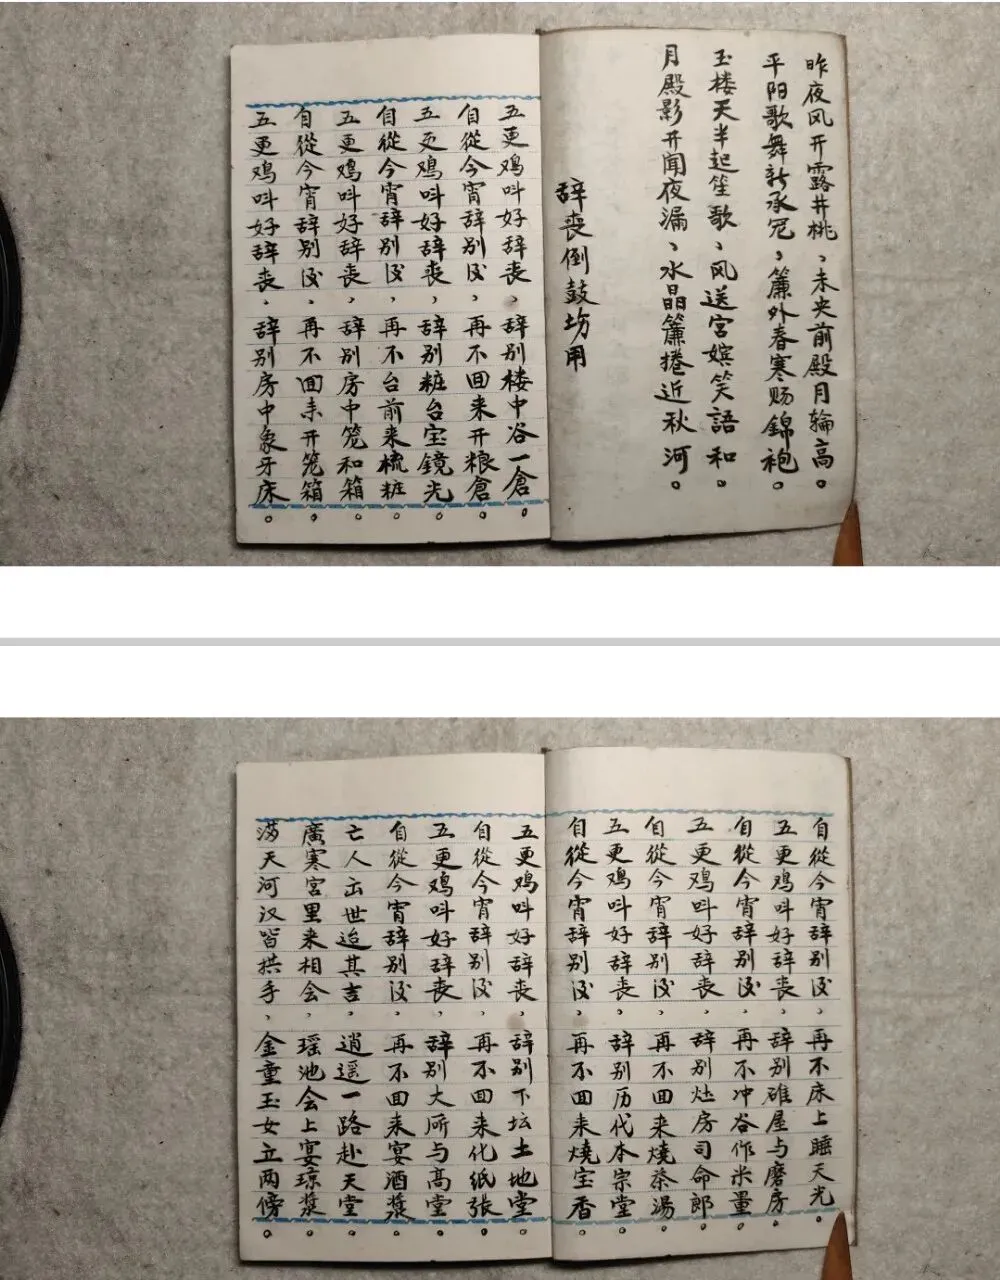 昨夜风开露井桃、未央前殿月轮高。
平阳歌舞新承冠、簾外春寒赐錦袍。
玉楼天半起笙歌、风送宫嫔笑語和。
月殿影开闻夜漏、水晶簾捲近秋河。
辞丧倒鼓坊用
五更鸡叫好辞丧、辞别楼中谷一倉。
自從今宵辞别后，再不回来开粮倉。
五更鸡叫好辞丧，辞别粧台宝鏡光。
自從今宵辞别后，再不台前来梳粧。
五更鸡叫好辞丧、辞别房中笼和箱。
自從今宵辞别后、再不回来开笼箱。
五更鸡叫好辞丧、辞别房中象牙床。
自從今宵辞别后，再不床上睡天光。
五更鸡叫好辞丧，辞别碓屋与磨房。
自從今宵辞别后，再不冲谷作米量。
五更鸡叫好辞丧，辞别灶房司命郎。
自從今宵辞别后，再不回来燒茶湯。
五更鸡叫好辞丧，辞别历代本宗堂。
自從今宵辞别后，再不回来燒宝香。
五更鸡叫好辞丧，辞别下坛土地堂。
自從今宵辞别后，再不回来化纸張。
五更鸡叫好辞丧，辞别大所与高堂。
自從今宵辞别后，再不回来宴酒漿。
亡人出世迨其吉，逍遥一路赴天堂。
廣寒宫里来相会，瑶池会上宴琼漿。
满天河汉皆拱手，金童玉女立两傍。